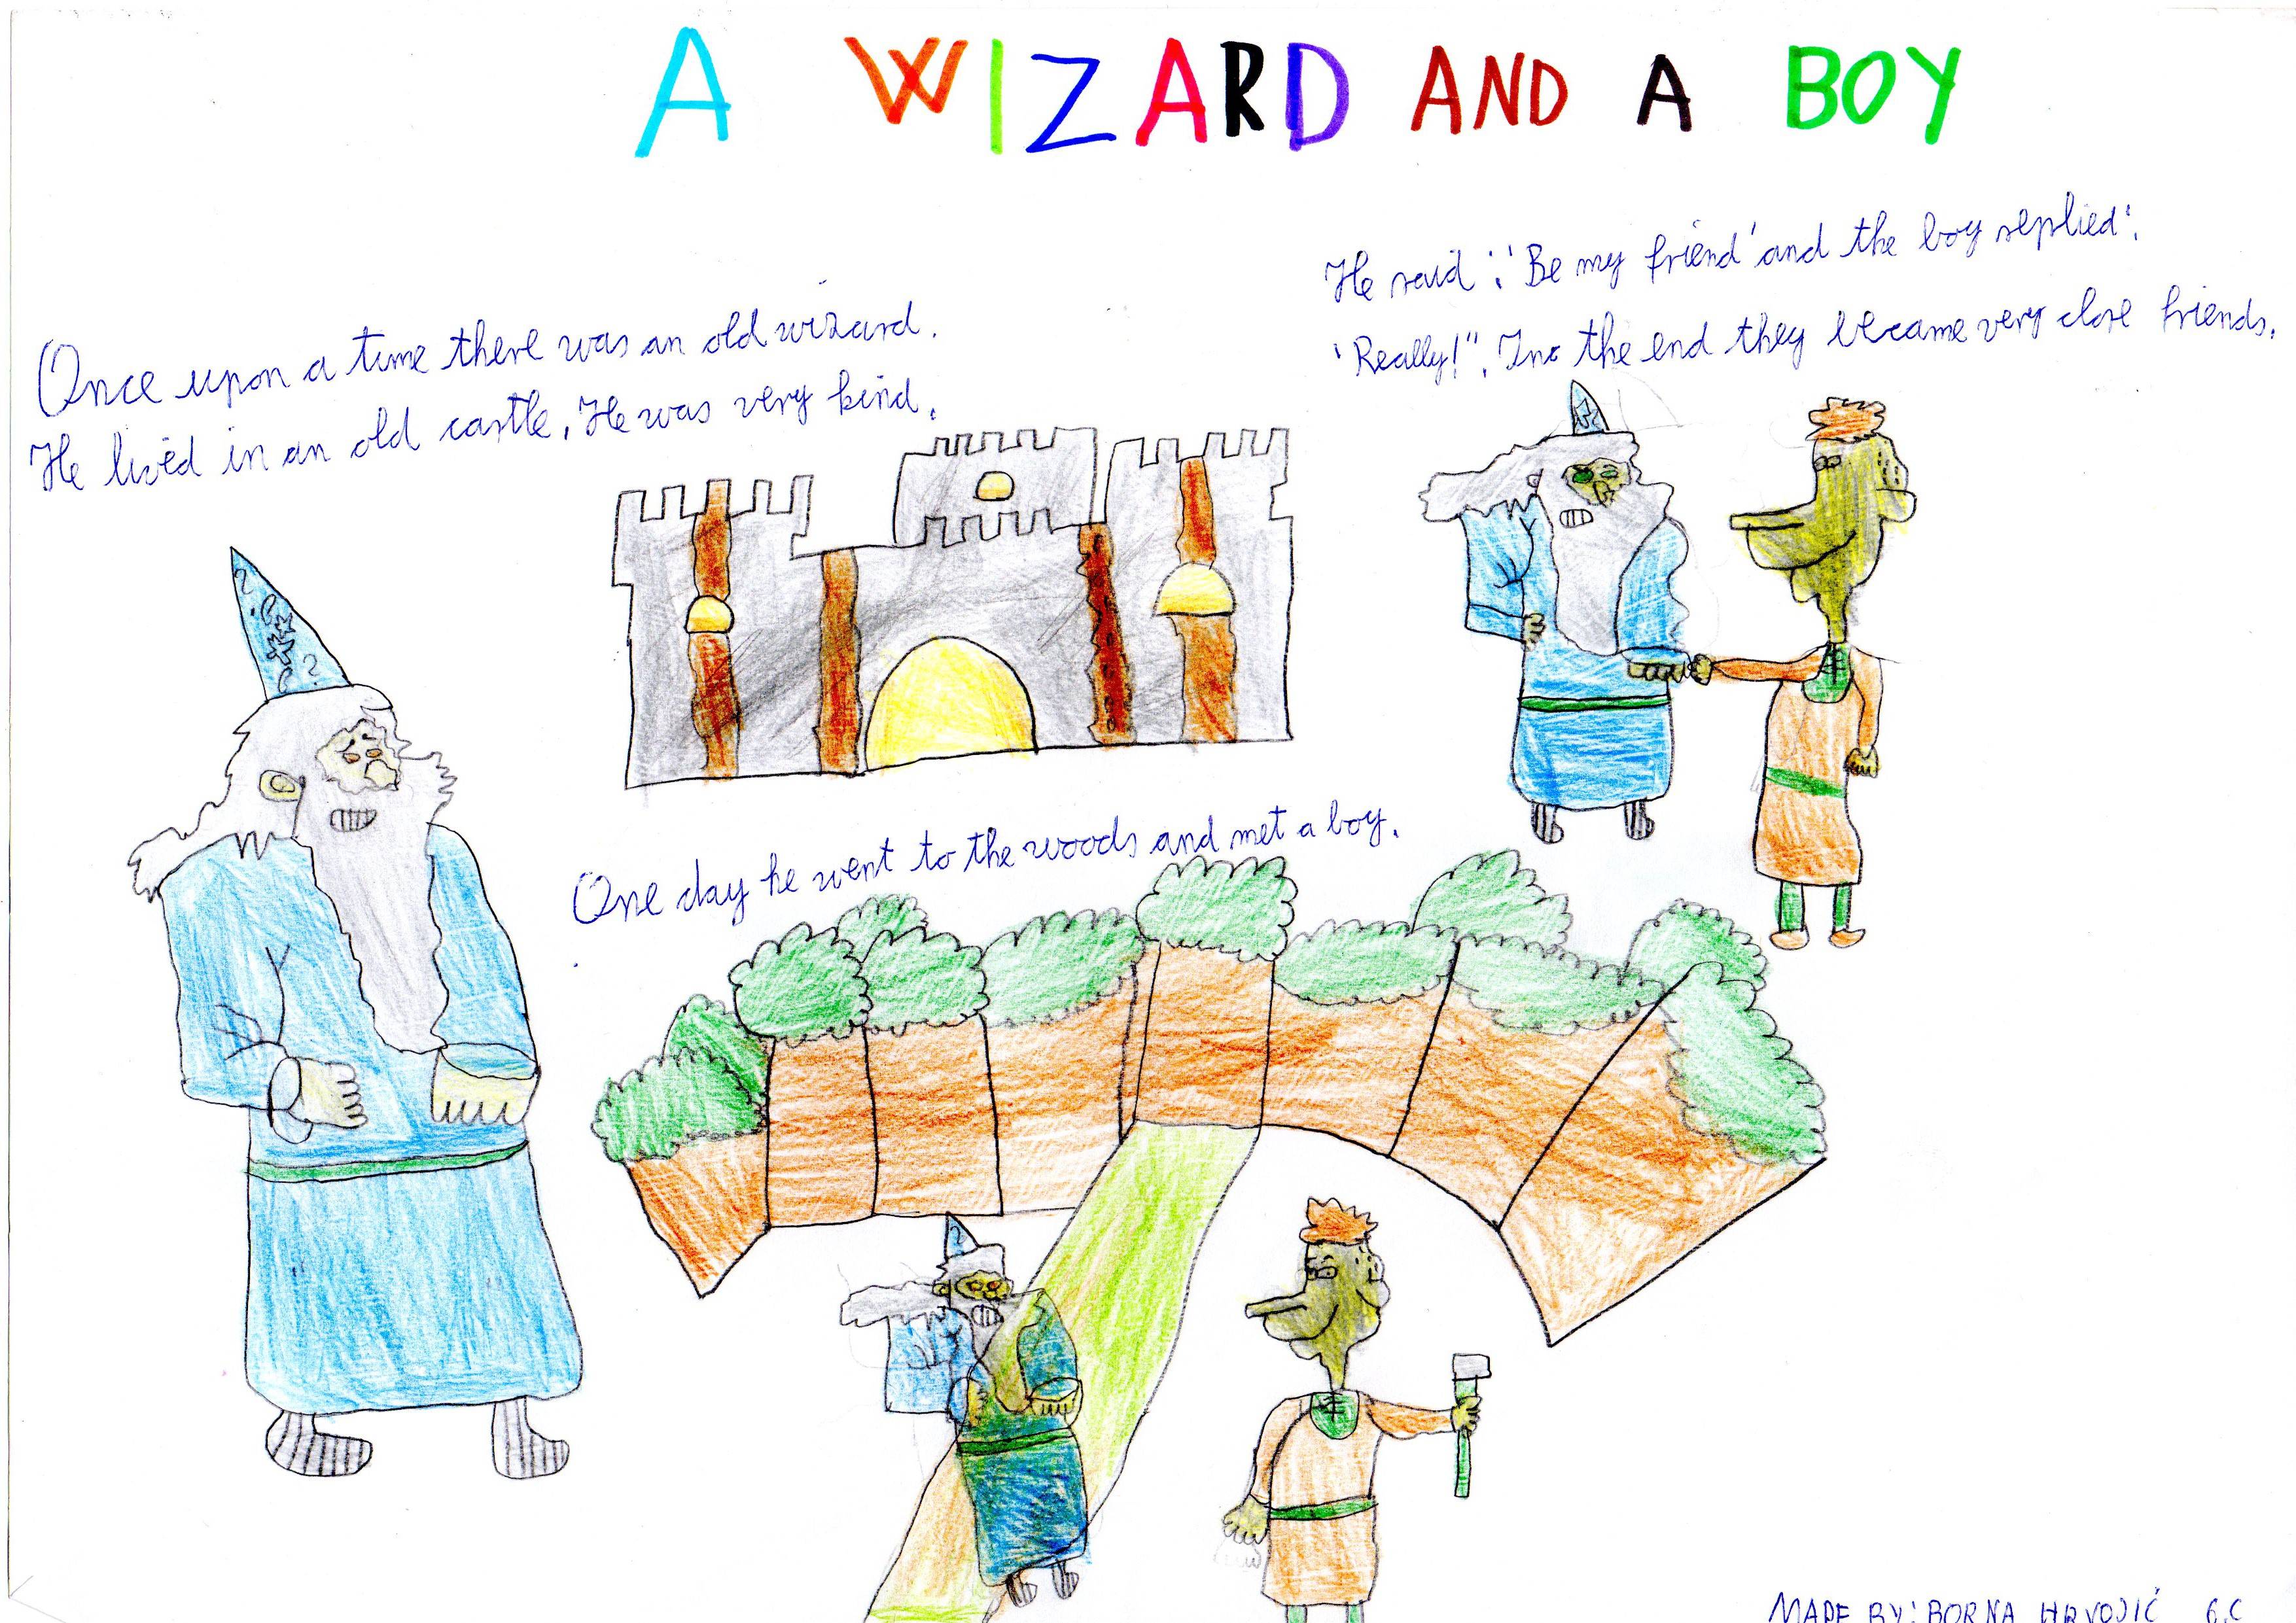 A WIZARD AND A BOY
Once upon a time there was an old wizard.
He lived in an old castle. He was very kind.
One day he went to the woods and met a boy.
He said: "Be my friend' and the boy replied:
'Really!". Ino the end they became very close friends.
MADE BY: BORNA HRVOJIĆ 6.C